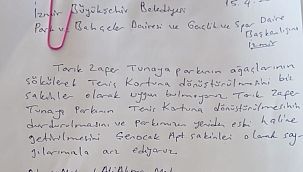 İzmir Büyükşehir Belediyesi 15.4.
Park ve Bahçeler Dairesi ve Gençlik ve Spor Daire
Başkanlığına
İzmir
Tarık Zafer Tunaya parkının ağaçlarının
sökülerek Tenis Kortuna dönüştürülmesini biz
sakinler olarak uygun bulmuyoruz. Tarık Zafer
Tunaya Parkının Tenis Kortuna dönüştürülmesinin
durdurulmasını ve parkımızın yeniden eski haline
getirilmesini Şenocak Apt sakinleri olarak say
gılarımızla arz ediyoruz